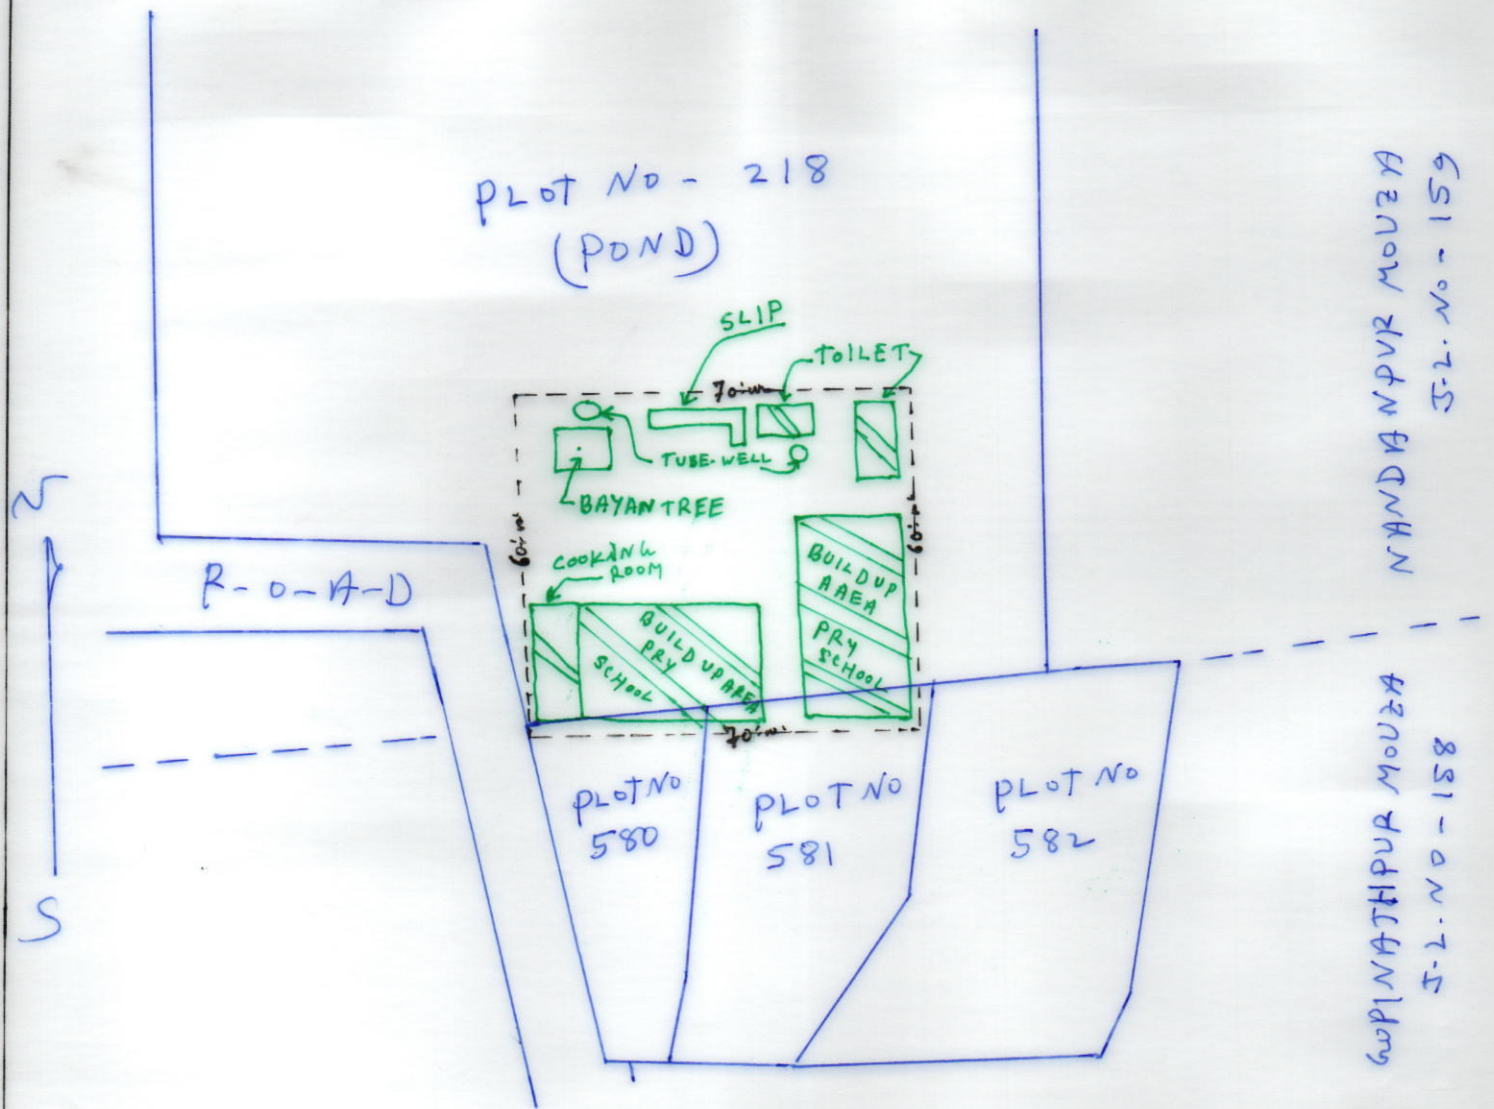 PLOT NO - 218
(POND)
SLIP
TOILET
TUBE-WELL
BAYAN TREE
COOKING
ROOM
BUILD UP AREA
PRY
SCHOOL
BUILD UP
AREA
PRY
SCHOOL
R-O-A-D
N
S
PLOT NO
580
PLOT NO
581
PLOT NO
582
NANDANPUR MOUZA
J.L. NO - 159
GOPINATHPUR MOUZA
J.L. NO - 158